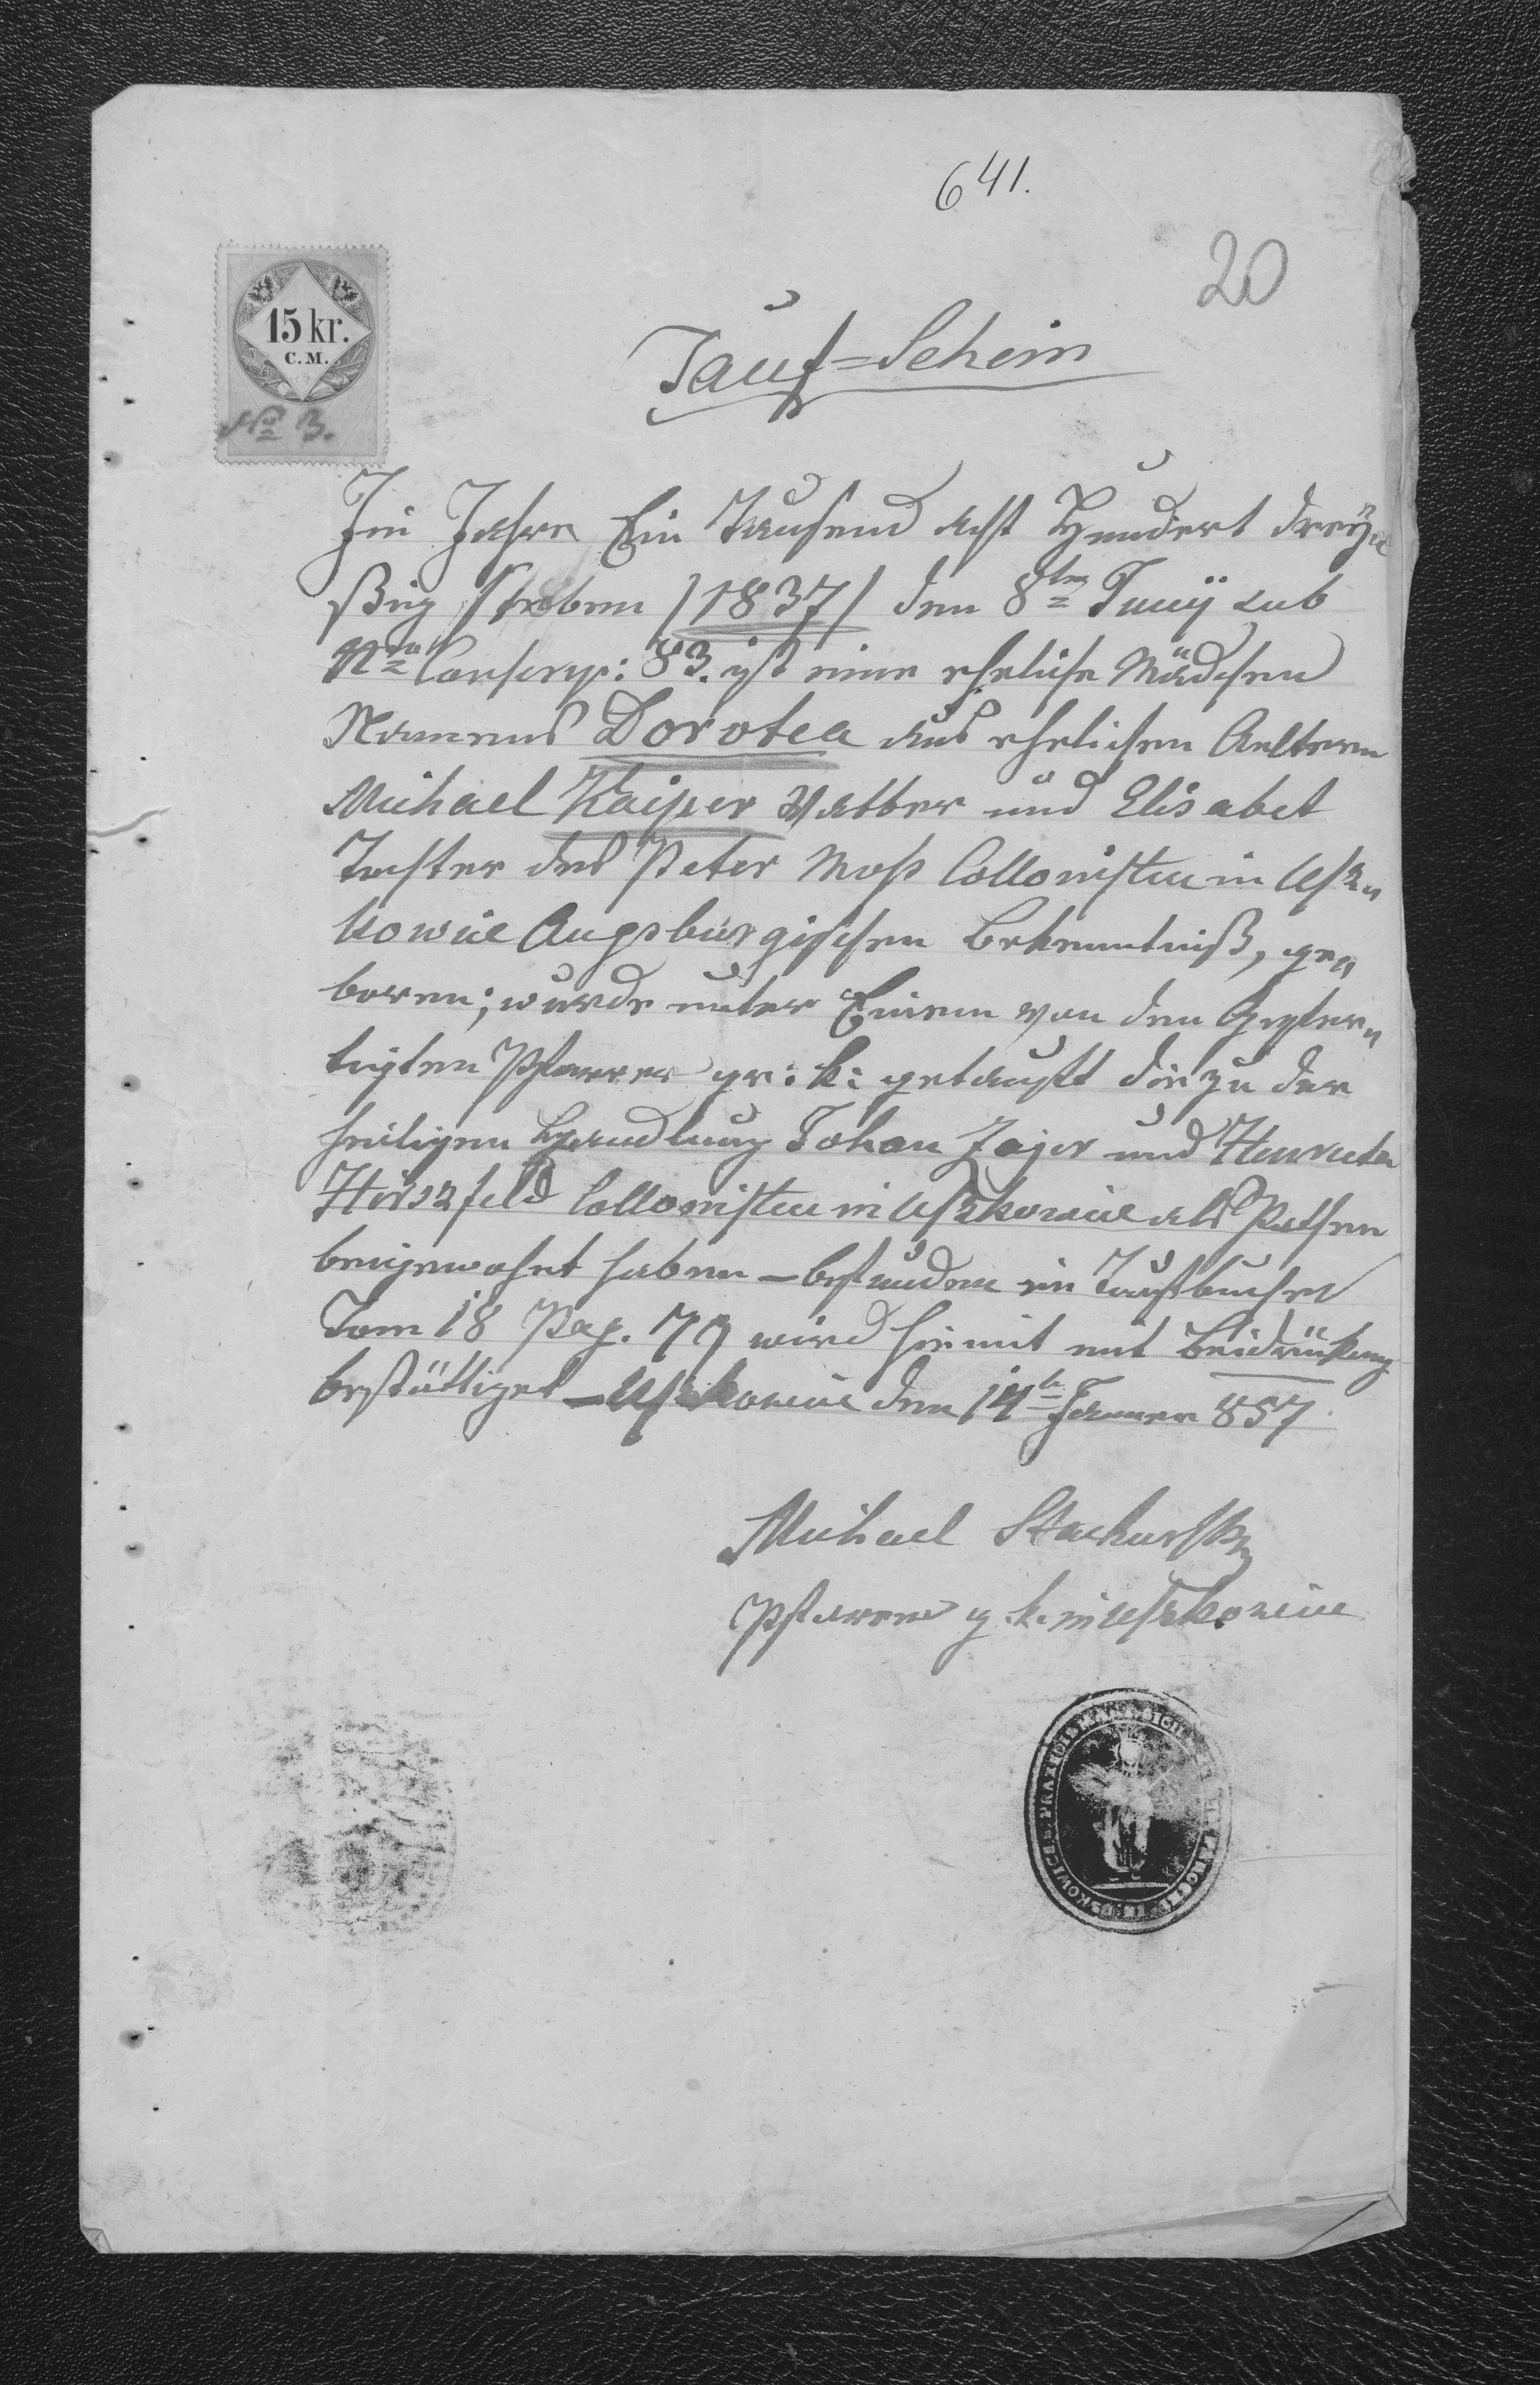 641.
20
15 kr.
C.M.
No 3.
Tauf=Schein
Im Jahre Ein Tausend acht Hundert drey„
ßig sieben /1837/ den 8ten Juny sub
Nro Conscrip: 83. ist eine eheliche Mädchen
Namens Dorotea aus ehelichen Aeltern
Michael Kaiper Vatter und Elisabet
Tochter des Peter Moss Collonisten in Usz„
kowice Augsburgischen Bekenntniß, ge„
boren; wurde unter Einem von den Gefer„
tigten Pfarrer gr: k: getauft die zu der
heiligen Handlung Johan Jajer und Henrieta
Hirszfeld Collonisten in Uszkowice als Pathen
beigewohnt haben – befunden im Taufbuche
Tom 18 Pag. 77 wird hiemit mit Beidrükung
bestättiget – Uszkowice den 14t Januer 857
Michael Stachursky
Pfarrer g. k. in Uszkowice